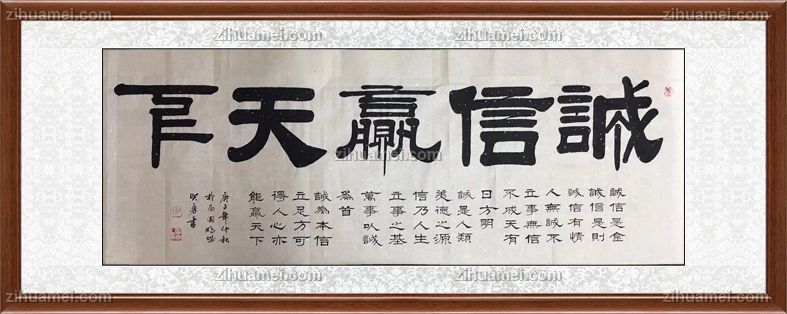 zihuamei.com
zihuamei.com
zihuamei.com
誠信贏天下
zihuamei.com
誠信是金
誠信是則
誠信有情
人無誠不
立事無信
不成天有
日方明
誠是人類
美德之源
信乃人生
立事之基
萬事以誠
為首
誠為本信
立足方可
得人心亦
能贏天下
庚子年仲秋
於南國鵬城
書
zihuamei.com
zihuamei.com
zihuamei.com
zihuamei.com